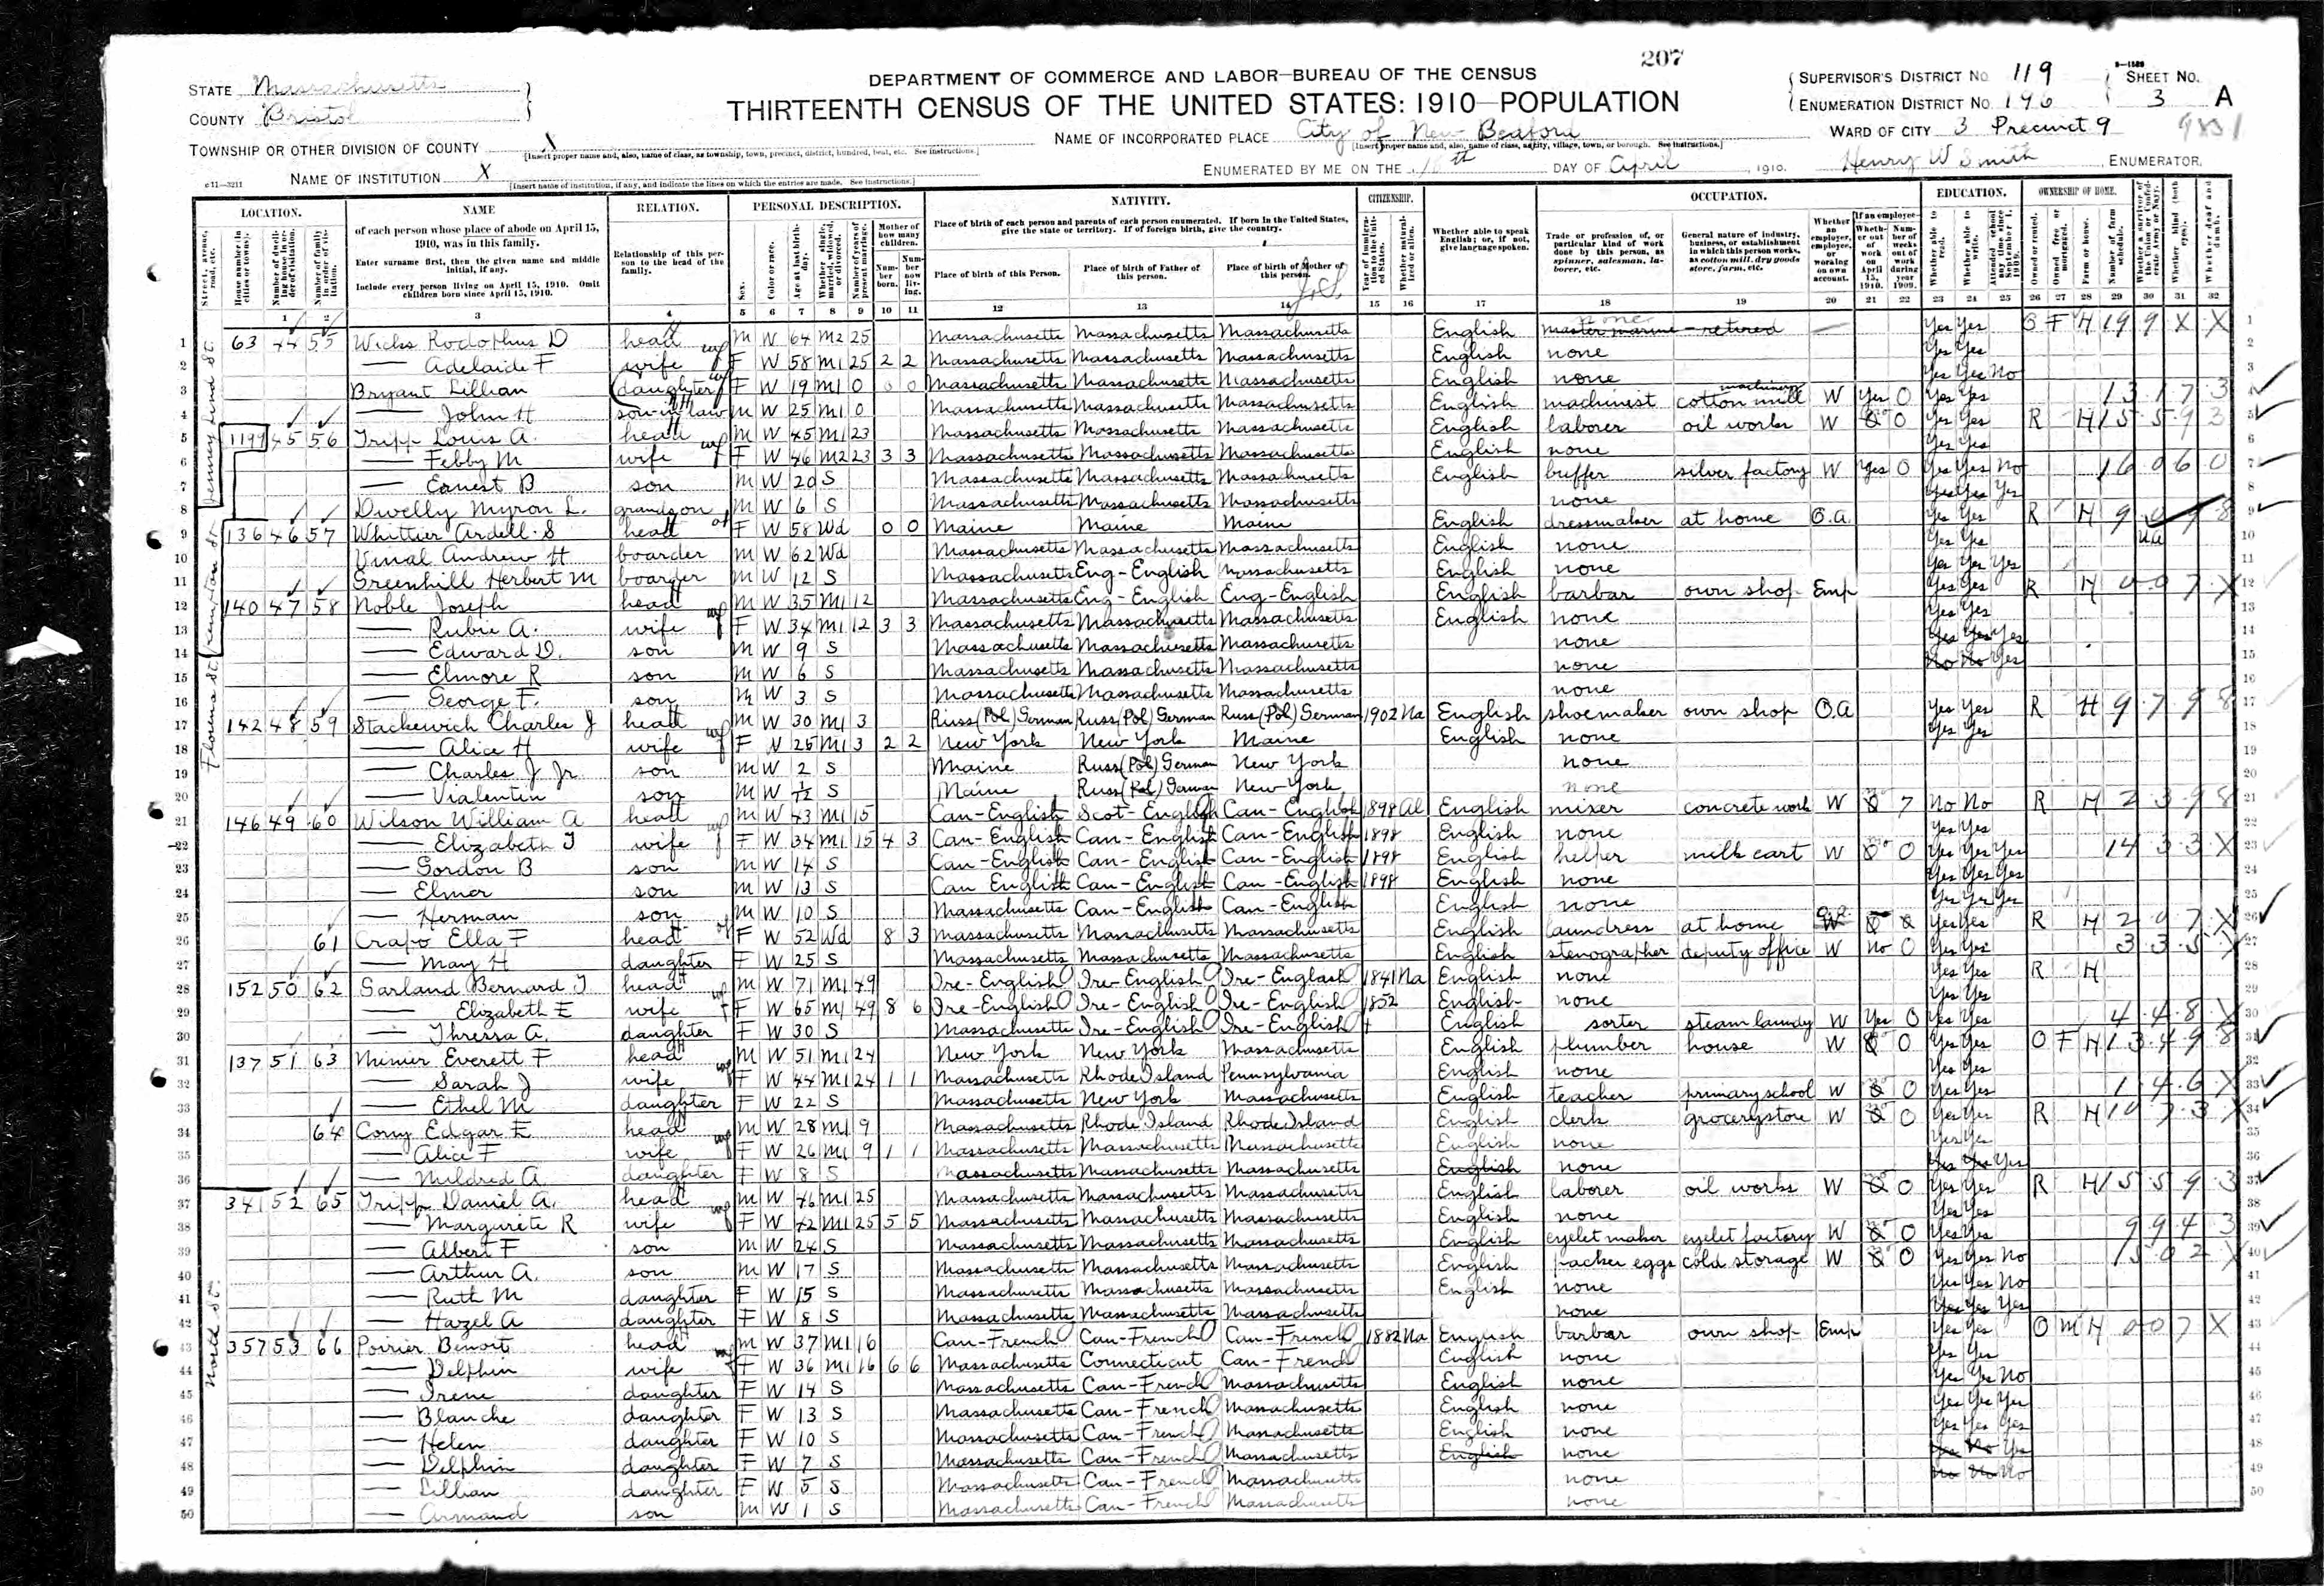 207
DEPARTMENT OF COMMERCE AND LABOR—BUREAU OF THE CENSUS
THIRTEENTH CENSUS OF THE UNITED STATES: 1910—POPULATION
STATE Massachusetts
COUNTY Bristol
TOWNSHIP OR OTHER DIVISION OF COUNTY X
[Insert proper name and, also, name of class, as township, town, precinct, district, hundred, beat, etc. See instructions.]
NAME OF INSTITUTION X
[Insert name of institution, if any, and indicate the lines on which the entries are made. See instructions.]
NAME OF INCORPORATED PLACE City of New Bedford
[Insert proper name and, also, name of class, as city, village, town, or borough. See instructions.]
ENUMERATED BY ME ON THE 16th DAY OF April, 1910. Henry W Smith, ENUMERATOR.
SUPERVISOR'S DISTRICT NO. 119
ENUMERATION DISTRICT NO. 196
SHEET NO. 3 A
WARD OF CITY 3 Precinct 9
LOCATION. NAME RELATION. PERSONAL DESCRIPTION. NATIVITY. CITIZENSHIP. OCCUPATION. EDUCATION. OWNERSHIP OF HOME.
of each person whose place of abode on April 15, 1910, was in this family.
Enter surname first, then the given name and middle initial, if any.
Include every person living on April 15, 1910. Omit children born since April 15, 1910.
Relationship of this person to the head of the family.
Place of birth of each person and parents of each person enumerated. If born in the United States, give the state or territory. If of foreign birth, give the country.
Place of birth of this Person. Place of birth of Father of this person. Place of birth of Mother of this person.
Whether able to speak English; or, if not, give language spoken.
Trade or profession of, or particular kind of work done by this person, as spinner, salesman, laborer, etc.
General nature of industry, business, or establishment in which this person works, as cotton mill, dry goods store, farm, etc.
1 2 3 4 5 6 7 8 9 10 11 12 13 14 15 16 17 18 19 20 21 22 23 24 25 26 27 28 29 30 31 32
1 63 44 55 Wicks Rodolphus D head M W 64 M2 25 Massachusetts Massachusetts Massachusetts English none master marine - retired Yes Yes O F H
2 — Adelaide F wife F W 58 M1 25 2 2 Massachusetts Massachusetts Massachusetts English none Yes Yes
3 Bryant Lillian daughter F W 19 M1 0 0 0 Massachusetts Massachusetts Massachusetts English none Yes Yes No
4 — John H son-in-law M W 25 M1 0 Massachusetts Massachusetts Massachusetts English machinist cotton mill machinery W Yes 0 Yes Yes
5 1199 45 56 Tripp Louis A. head M W 45 M1 23 Massachusetts Massachusetts Massachusetts English laborer oil works W 0 Yes Yes R H
6 — Febby M wife F W 46 M2 23 3 3 Massachusetts Massachusetts Massachusetts English none Yes Yes
7 — Earnest B son M W 20 S Massachusetts Massachusetts Massachusetts English buffer silver factory W Yes 0 Yes Yes No
8 Dwelly Myron L. grandson M W 6 S Massachusetts Massachusetts Massachusetts none Yes Yes Yes
9 136 46 57 Whittier Ardell S head F W 58 Wd 0 0 Maine Maine Maine English dressmaker at home O.A. Yes Yes R H
10 Vinal Andrew H boarder M W 62 Wd Massachusetts Massachusetts Massachusetts English none Yes Yes
11 Greenhill Herbert M boarder M W 12 S Massachusetts Eng-English Massachusetts English none Yes Yes Yes
12 140 47 58 Noble Joseph head M W 35 M1 12 Massachusetts Eng-English Eng-English English barbar own shop Emp Yes Yes R H
13 — Rubie A. wife F W 34 M1 12 3 3 Massachusetts Massachusetts Massachusetts English none Yes Yes
14 — Edward D. son M W 9 S Massachusetts Massachusetts Massachusetts none Yes Yes Yes
15 — Elmore R son M W 6 S Massachusetts Massachusetts Massachusetts none No No Yes
16 — George F. son M W 3 S Massachusetts Massachusetts Massachusetts none
17 142 48 59 Stackewich Charles J head M W 30 M1 3 Russ (Pol) German Russ (Pol) German Russ (Pol) German 1902 Na English shoemaker own shop O.A Yes Yes R H
18 — Alice H wife F W 25 M1 3 2 2 New York New York Maine English none Yes Yes
19 — Charles J Jr son M W 2 S Maine Russ (Pol) German New York none
20 — Vialentin son M W S Maine Russ (Pol) German New York none
21 146 49 60 Wilson William A head M W 43 M1 15 Can-English Scot-English Can-English 1898 Al English mixer concrete work W 7 No No R H
22 — Elizabeth J wife F W 34 M1 15 4 3 Can-English Can-English Can-English 1898 English none Yes Yes
23 — Gordon B son M W 14 S Can-English Can-English Can-English 1898 English helper milk cart W 0 Yes Yes Yes
24 — Elmer son M W 13 S Can English Can-English Can-English 1898 English none Yes Yes Yes
25 — Herman son M W 10 S Massachusetts Can-English Can-English English none Yes Yes Yes
26 61 Crapo Ella F head F W 52 Wd 8 3 Massachusetts Massachusetts Massachusetts English laundress at home Yes Yes R H
27 — May H daughter F W 25 S Massachusetts Massachusetts Massachusetts English stenographer deputy office W No 0 Yes Yes
28 152 50 62 Garland Bernard J. head M W 71 M1 49 Ire-English Ire-English Ire-English 1841 Na English none Yes Yes R H
29 — Elizabeth E wife F W 65 M1 49 8 6 Ire-English Ire-English Ire-English 1852 English none Yes Yes
30 — Thressa A. daughter F W 30 S Massachusetts Ire-English Ire-English English sorter steam laundy W Yes 0 Yes Yes
31 137 51 63 Minier Everett F head M W 51 M1 24 New York New York Massachusetts English plumber house W 0 Yes Yes O F H
32 — Sarah J wife F W 44 M1 24 1 1 Massachusetts Rhode Island Pennsylvania English none Yes Yes
33 — Ethel M daughter F W 22 S Massachusetts New York Massachusetts English teacher primary school W 0 Yes Yes
34 64 Cory Edgar E head M W 28 M1 9 Massachusetts Rhode Island Rhode Island English clerk grocery store W 0 Yes Yes R H
35 — Alice F wife F W 26 M1 9 1 1 Massachusetts Massachusetts Massachusetts English none Yes Yes
36 — Mildred A. daughter F W 8 S Massachusetts Massachusetts Massachusetts English none Yes Yes Yes
37 341 52 65 Tripp Daniel A. head M W 46 M1 25 Massachusetts Massachusetts Massachusetts English laborer oil works W 0 Yes Yes R H
38 — Margurete R wife F W 42 M1 25 5 5 Massachusetts Massachusetts Massachusetts English none Yes Yes
39 — Albert F son M W 24 S Massachusetts Massachusetts Massachusetts English eyelet maker eyelet factory W 0 Yes Yes
40 — Arthur A. son M W 17 S Massachusetts Massachusetts Massachusetts English packer eggs cold storage W 0 Yes Yes No
41 — Ruth M daughter F W 15 S Massachusetts Massachusetts Massachusetts English none Yes Yes No
42 — Hazel A daughter F W 8 S Massachusetts Massachusetts Massachusetts none Yes Yes Yes
43 357 53 66 Poirier Benoit head M W 37 M1 16 Can-French Can-French Can-French 1882 Na English barbar own shop Emp Yes Yes O M H
44 — Delphin wife F W 36 M1 16 6 6 Massachusetts Connecticut Can-French English none Yes Yes
45 — Irene daughter F W 14 S Massachusetts Can-French Massachusetts English none Yes Yes No
46 — Blanche daughter F W 13 S Massachusetts Can-French Massachusetts English none Yes Yes Yes
47 — Helen daughter F W 10 S Massachusetts Can-French Massachusetts English none Yes Yes Yes
48 — Delphin daughter F W 7 S Massachusetts Can-French Massachusetts English none Yes No Yes
49 — Lillian daughter F W 5 S Massachusetts Can-French Massachusetts none No No No
50 — Armand son M W 1 S Massachusetts Can-French Massachusetts none